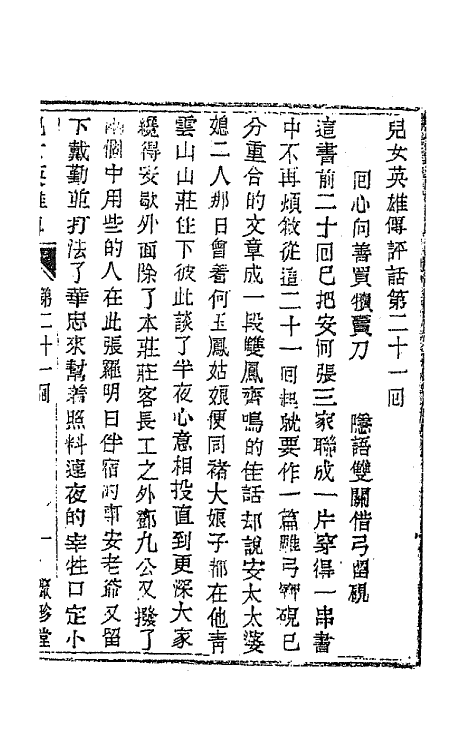 兒女英雄傳評話第二十一回
回心向善買犢賣刀　隱語雙關借弓留硯
這書前二十回已把安何張三家聯成一片穿得一串書
中不再煩敘從這二十一回起就要作一篇雕弓寶硯已
分重合的文章成一段雙鳳齊鳴的佳話却說安太太婆
媳二人那日會着何玉鳳姑娘便同褚大娘子都在他青
雲山山莊住下彼此談了半夜心意相投直到更深大家
纔得安歇外面除了本莊莊客長工之外鄧九公又撥了
兩個中用些的人在此張羅明日伴宿的事安老爺又留
下戴勤並打法了華忠來幫着照料連夜的宰牲口定小
第二十一回　一　聚珍堂